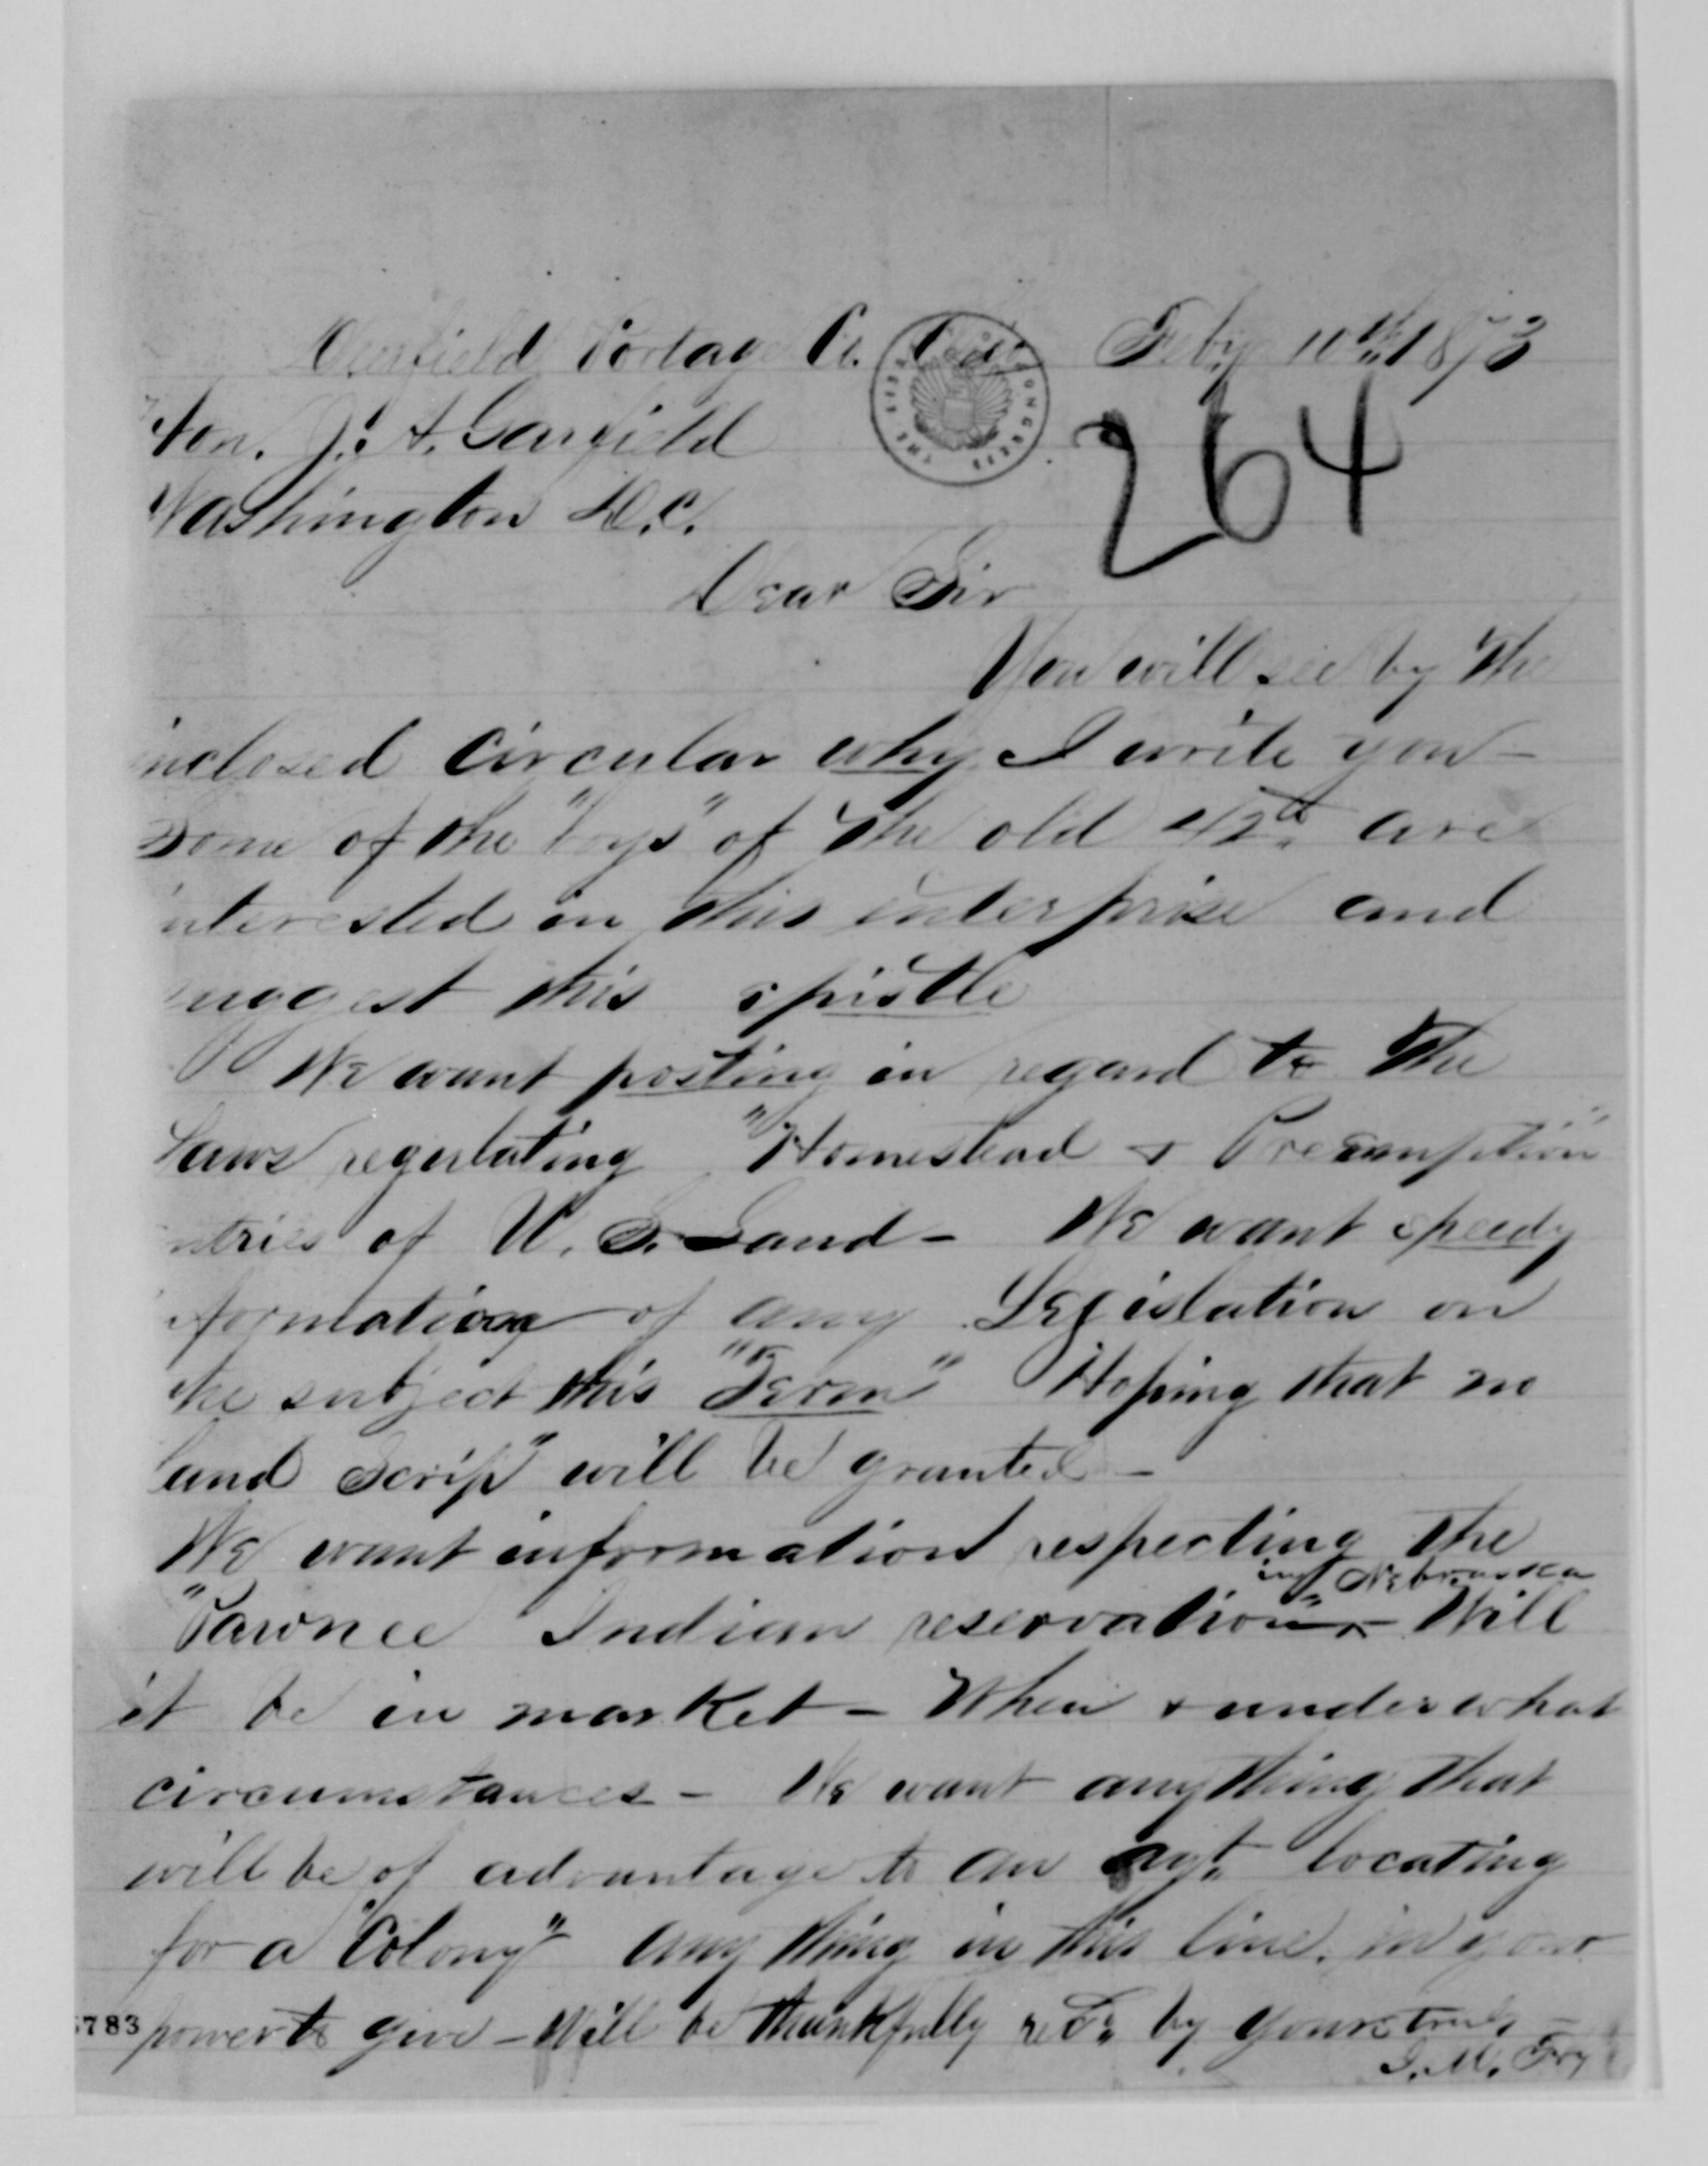 Deerfield Portage Co. O. Feby 10th 1873
Hon. J. A. Garfield
264
Washington D.C.
Dear Sir
You will see by the
inclosed circular why I write you -
Some of the "boys" of the old 42d are
interested in this enterprise and
suggest this epistle
We want posting in regard to the
Laws regulating "Homestead & Preemption"
entries of U. S. Land - We want speedy
information of any Legislation on
the subject this "Term" Hoping that no
land Scrip" will be granted -
We want information respecting the
in Nebraska
"Pawnee Indian reservation" - Will
it be in market - When & under what
circumstances - We want anything that
will be of advantage to an agt. locating
for a "Colony" any thing in this line, in your
power to give - Will be thankfully recd. by yours truly -
I. M. Fry
5783
THE LIBRARY OF CONGRESS